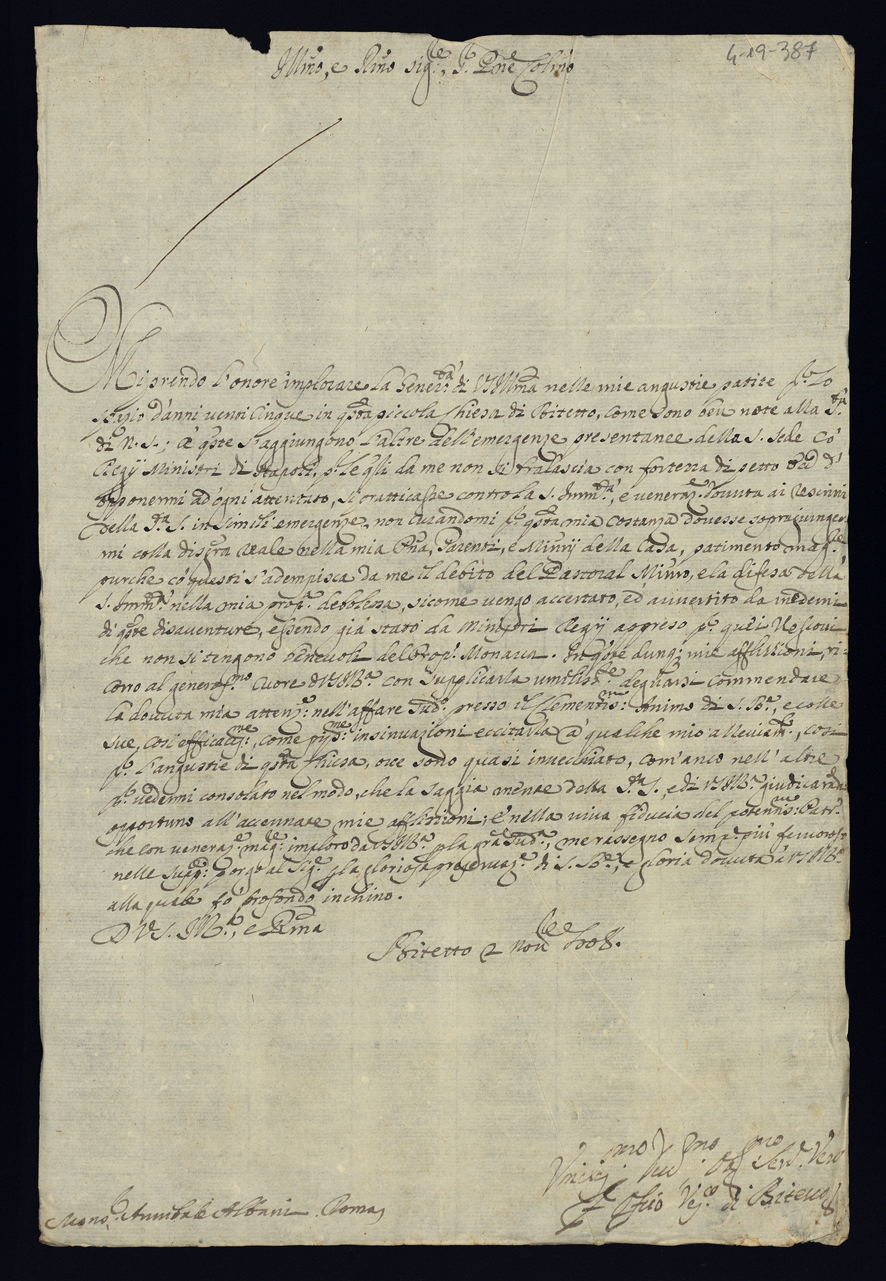 4-19-387
Illmo, e Rmo Sig.re, S. Pne Colmo
Mi prendo l'onore implorare la Gener.tà di V.S. Illma nelle mie angustie patite p. lo
spazio d'anni venti cinque in qsta piccola Chiesa di Bitetto, come sono ben note alla S.tà
di N. S.; à qste s'aggiungono l'altre dell'emergenze presentanee della S. Sede co'
Regij Ministri di Napoli, p. le qli da me non si tralascia con fortezza di petto
opponermi ad ogni attentato, si pratticasse contro la S. Imm.tà, e veneraz.e dovuta ai
della S.tà S. in simili emergenze, non curandomi p. qsta mia costanza dovesse sopragiungere
mi colla disgra Reale nella mia Psna, Parenti, e Minrij della Casa, patimento magg.re
purche cò questi s'adempisca da me il debito del Pastoral Minro, e la difesa della
S. Imm.tà nella mia debolezza, sicome vengo accertato, ed avvertito da medemi
di qste disaventure, essendo già stato da Ministri Regij appreso p. quei Vescovi
che non si tengono benevoli del Monarca. In qste dunq. mie afflizioni, ri-
corro al generos.mo cuore di V.S. Illma con supplicarla umilmte degnarsi commendare
la dovuta mia attenz.e nell'affare sud.o presso il Clementis.mo Animo di S. Bne, e colle
sue, così efficaciss.me, come pijs.me insinuazioni eccitarla à qualche mio alleviam.to, così
p. l'angustie di qsta Chiesa, ove sono quasi invecchiato, com'anco nell'altre
p. vedermi consolato nel modo, che la saggia mente della S.tà S., e di V.S. Illma giudicarà
opportuno all'accennate mie afflizioni; e nella viva fiducia del potentis.mo Patr.o
che con veneraz.e imploro da V.S. Illma, p la gra sud.a, me rassegno sempre più fervoroso
nelle supp.e porgo al Sig.re p la gloriosa preservaz.e di S. Bne, e gloria dovuta à V.S. Illma
alla quale fò profondo inchino.
D V.S. Illma, e Rma
Bitetto 2 Novbre 1708.
Mons.r Annibale Albani Roma
Umiliss.mo Dev.mo Obl.mo Serv. Vero
Vesc.o di Bitetto